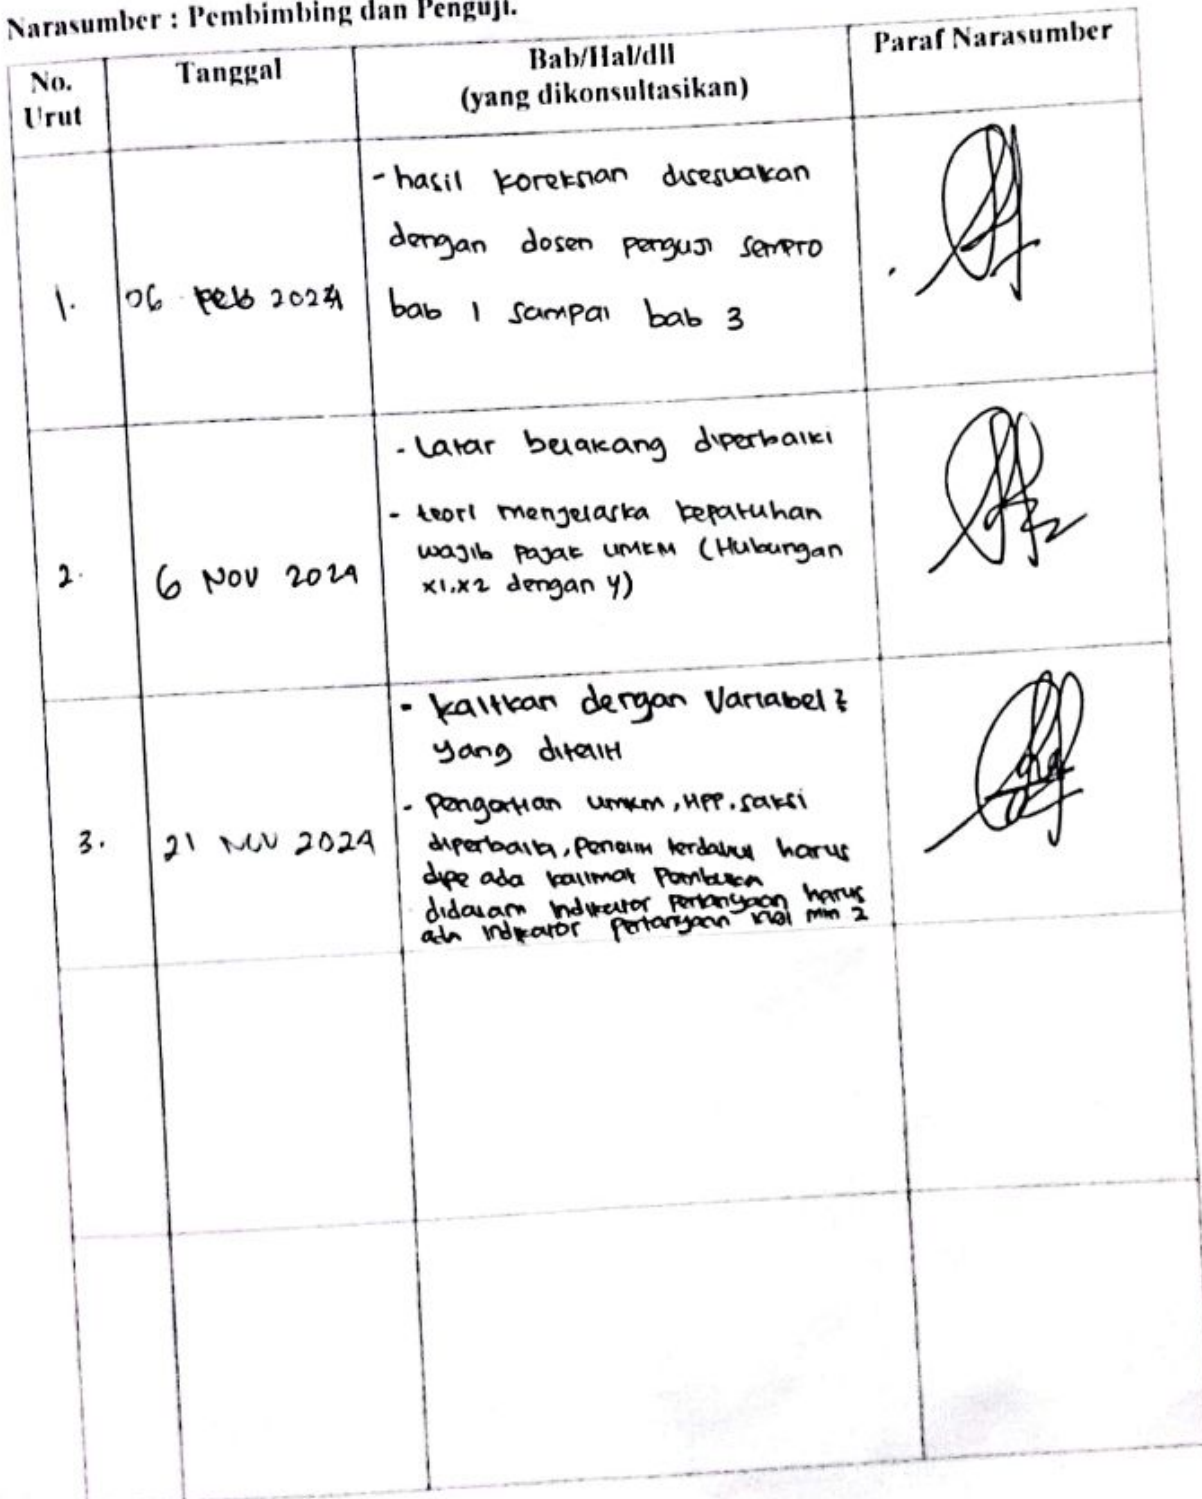 Narasumber : Pembimbing dan Penguji.
No. Urut
Tanggal
Bab/Hal/dll
(yang dikonsultasikan)
Paraf Narasumber
1.
06 Feb 2024
- hasil koreksian disesuaikan
dengan dosen penguji sempro
bab 1 sampai bab 3
2.
6 NOV 2024
- Latar belakang diperbaiki
- teori menjelaska kepatuhan
wajib pajak UMKM (Hubungan
x1,x2 dengan y)
3.
21 NOV 2024
- kaitkan dengan Variabel2
yang diteliti
- Pengertian umkm, HPP, saksi
diperbaiki, Peneliti terdahulu harus
dipe ada kalimat Pembuka
didalam indikator Pertanyaan harus
ada indikator Pertanyaan min 2